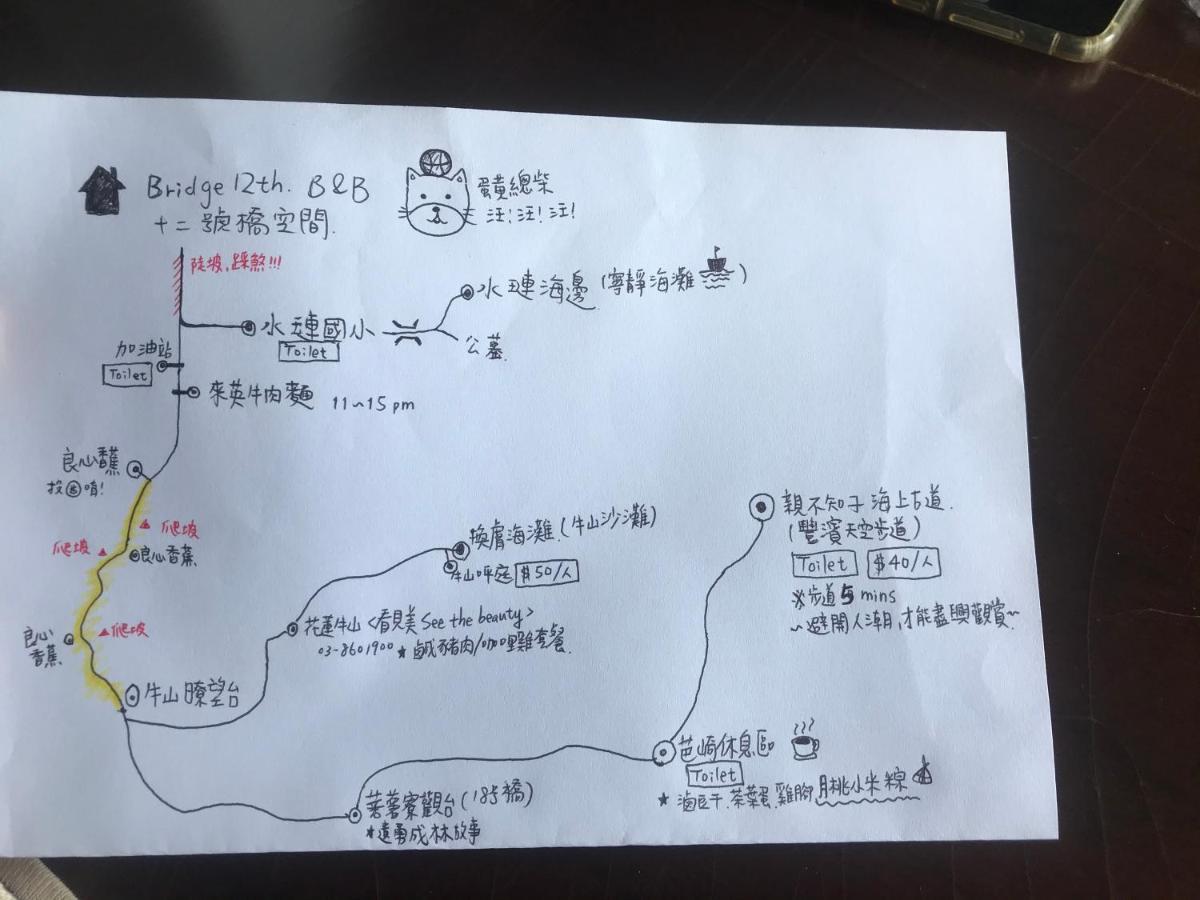 Bridge 12th. B&B
十二號橋空間.
蛋黃總柴
汪!汪!汪!
陡坡,踩煞!!!
水璉海邊(寧靜海灘)
水璉國小
Toilet
公墓.
加油站
Toilet
來英牛肉麵 11~15 pm
良心香蕉
投 唷!
爬坡
爬坡
良心香蕉
爬坡
良心
香蕉
牛山瞭望台
換膚海灘.(牛山沙灘)
牛山呼庭 $50/人
花蓮牛山<看見美 See the beauty>
03-8601900 ★鹹豬肉/咖哩雞套餐.
親不知子海上古道.
(豐濱天空步道)
Toilet $40/人
※步道5 mins
~避開人潮,才能盡興觀賞~
芭崎休息區
Toilet
★滷豆干.茶葉蛋.雞腳.月桃小米粽
蕃薯寮觀台(18號橋)
*遠勇成林故事